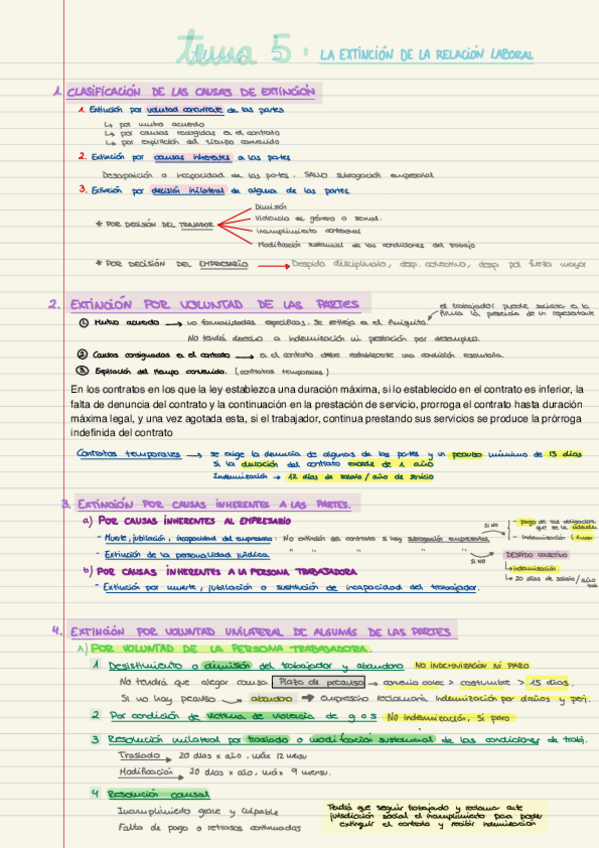 tema 5. LA EXTINCIÓN DE LA RELACIÓN LABORAL
1. CLASIFICACIÓN DE LAS CAUSAS DE EXTINCIÓN
1. Extinción por voluntad concurrente de las partes
↳ por mutuo acuerdo
↳ por causas recogidas en el contrato
↳ por expiración del tiempo convenido
2. Extinción por causas inherentes a las partes
Desaparición o incapacidad de las partes. SALVO subrogación empresarial
3. Extinción por decisión unilateral de alguna de las partes
Dimisión
Violencia de género o sexual.
* POR DECISIÓN DEL TRAJADOR
Incumplimiento contractual
Modificación sustancial de las condiciones del trabajo
* POR DECISIÓN DEL EMPRESARIO → Despido disciplinario, desp. colectivo, desp por fuerza mayor
2. EXTINCIÓN POR VOLUNTAD DE LAS PARTES
el trabajador puede solicitar en la firma la presencia de un representante
① Mutuo acuerdo → no formalidades específicas. Se refleja en el finiquito.
No tendrá derecho a indemnización ni prestación por desempleo.
② Causas consignadas en el contrato → en el contrato debe establecerse una condición resolutoria.
③ Expiración del tiempo convenido. (contratos temporales)
En los contratos en los que la ley establezca una duración máxima, si lo establecido en el contrato es inferior, la
falta de denuncia del contrato y la continuación en la prestación de servicio, prorroga el contrato hasta duración
máxima legal, y una vez agotada esta, si el trabajador, continua prestando sus servicios se produce la prórroga
indefinida del contrato
Contratos temporales → se exige la denuncia de algunas de las partes y un preaviso mínimo de 15 días
Si la duración del contrato excede de 1 año
Indemnización → 12 días de salario / año de servicio
3. EXTINCIÓN POR CAUSAS INHERENTES A LAS PARTES.
a) POR CAUSAS INHERENTES AL EMPRESARIO
SI NO
- pago de las obligaciones que se le
- Indemnización (1 mes
- Muerte, jubilación, incapacidad del empresario: No extinción del contrato si hay subrogación empresarial
- Extinción de la personalidad jurídica. " " " "
SI NO
DESPIDO COLECTIVO
↳ Indemnización
↳ 20 días de salario / año
b) POR CAUSAS INHERENTES A LA PERSONA TRABAJADORA
- Extinción por muerte, jubilación o sustitución de incapacidad del trabajador.
4. EXTINCIÓN POR VOLUNTAD UNILATERAL DE ALGUNAS DE LAS PARTES
A) POR VOLUNTAD DE LA PERSONA TRABAJADORA.
1 Desistimiento o dimisión del trabajador y abandono NO INDEMNIZACIÓN NI PARO
No tendrá que alegar causa Plazo de preaviso → convenio colec > costumbre > 15 días.
Si no hay preaviso → abandono → empresario reclamaría indemnización por daños y perj.
2 Por condición de víctima de violencia de g o s NO indemnización, Sí paro
3 Resolución unilateral por traslado o modificación sustancial de las condiciones de trabj.
Traslado → 20 días x año, máx 12 mensu
Modificación → 20 días x año, máx 9 mensu.
4 Resolución causal
Incumplimiento grave y culpable
Falta de pago o retrasos continuados
Tendrá que seguir trabajando y reclamar ante
jurisdicción social el incumplimiento para poder
extinguir el contrato y recibir indemnización